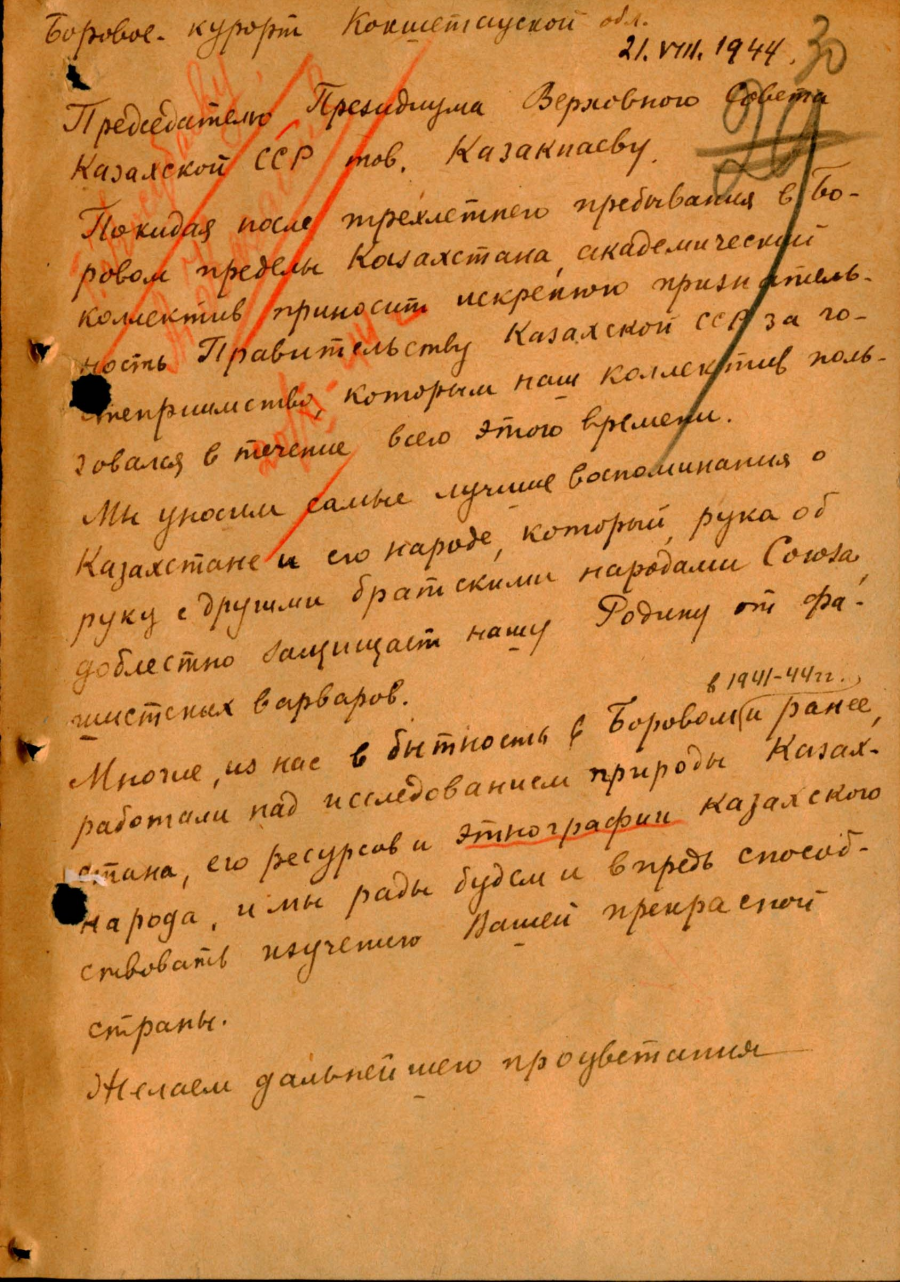 Боровое - курорт Кокшетауской обл.
21. VIII. 1944.
30
29
Председателю Президиума Верховного Совета
Казахской ССР тов. Казакпаеву.
Покидая после трехлетнего пребывания в Бо-
ровом пределы Казахстана, академический
коллектив приносит искренюю признатель-
ность Правительству Казахской ССР за го-
степриимство, которым наш коллектив поль-
зовался в течение всего этого времени.
Мы уносим самые лучшие воспоминания о
Казахстане и его народе, который, рука об
руку с другими братскими народами Союза,
доблестно защищает нашу Родину от фа-
шистских варваров.
в 1941-44 гг.
Многие, из нас в бытность в Боровом и ранее,
работали над исследованием природы Казах-
стана, его ресурсов и этнографии казахского
народа, и мы рады будем и впредь способ-
ствовать изучению Вашей прекрасной
страны.
Желаем дальнейшего процветания